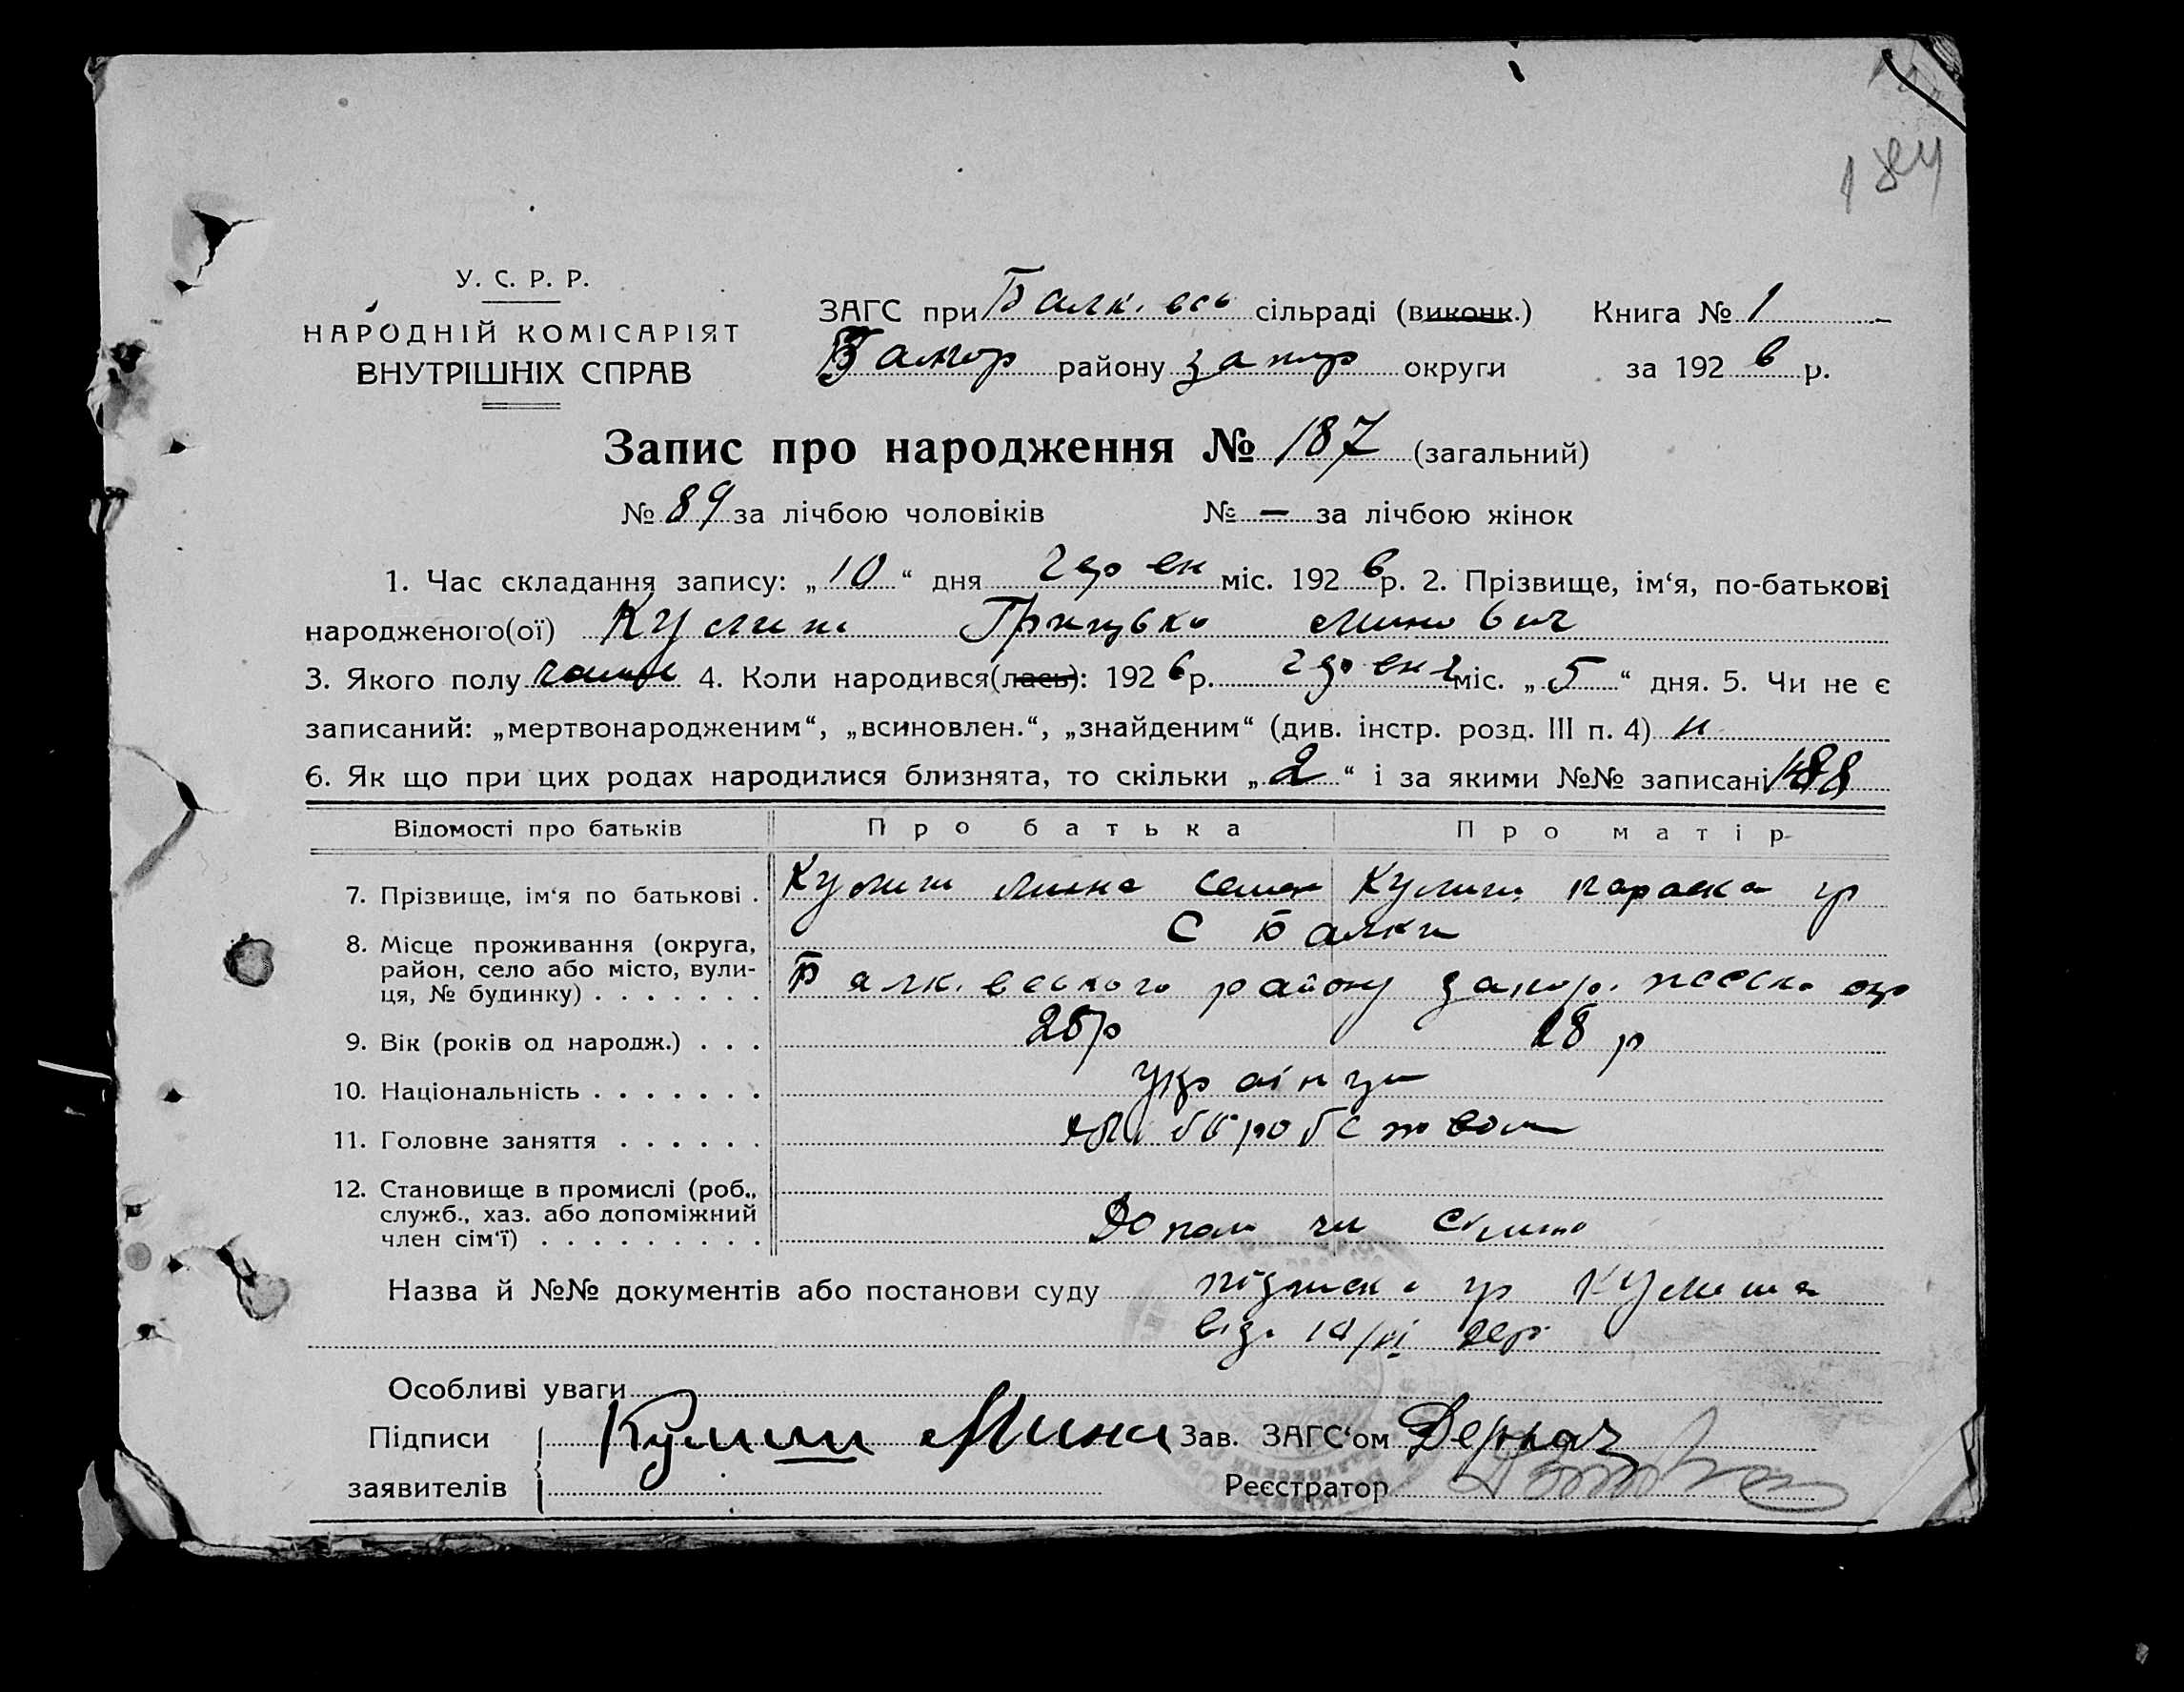 184
У. С. Р. Р.
НАРОДНІЙ КОМІСАРІЯТ
ВНУТРІШНІХ СПРАВ
ЗАГС при сільраді (виконк.) Книга № 1
району запор округи за 192 6 р.
Запис про народження № 187 (загальний)
№ 89 за лічбою чоловіків № — за лічбою жінок
1. Час складання запису: „ 10 “ дня міс. 192 6 р. 2. Прізвище, ім‘я, по-батькові
народженого(ої) Кулиш Грицько Минович
3. Якого полу 4. Коли народився(лась): 192 6 р. міс. „ 5 “ дня. 5. Чи не є
записаний: „мертвонародженим“, „всиновлен.“, „знайденим“ (див. інстр. розд. III п. 4) н
6. Як що при цих родах народилися близнята, то скільки „ 2 “ і за якими №№ записані 188
Відомості про батьків Про батька Про матір
7. Прізвище, ім‘я по батькові . Кулиш Мина Семен Кулиш Параска гр
8. Місце проживання (округа,
район, село або місто, вули-
ця, № будинку) . . . . . . .
С Балки
району запор. окр
9. Вік (років од народж.) . . . 28 р
10. Національність . . . . . . . українци
11. Головне заняття . . . . . . хліборобством
12. Становище в промислі (роб.,
служб., хаз. або допоміжний
член сім‘ї) . . . . . . . . .
Допом чл
Назва й №№ документів або постанови суду підписка гр Кулиша
від 10/XI
Особливі уваги
Підписи Кулиш Мина Зав. ЗАГС‘ом Деркач
заявителів Реєстратор